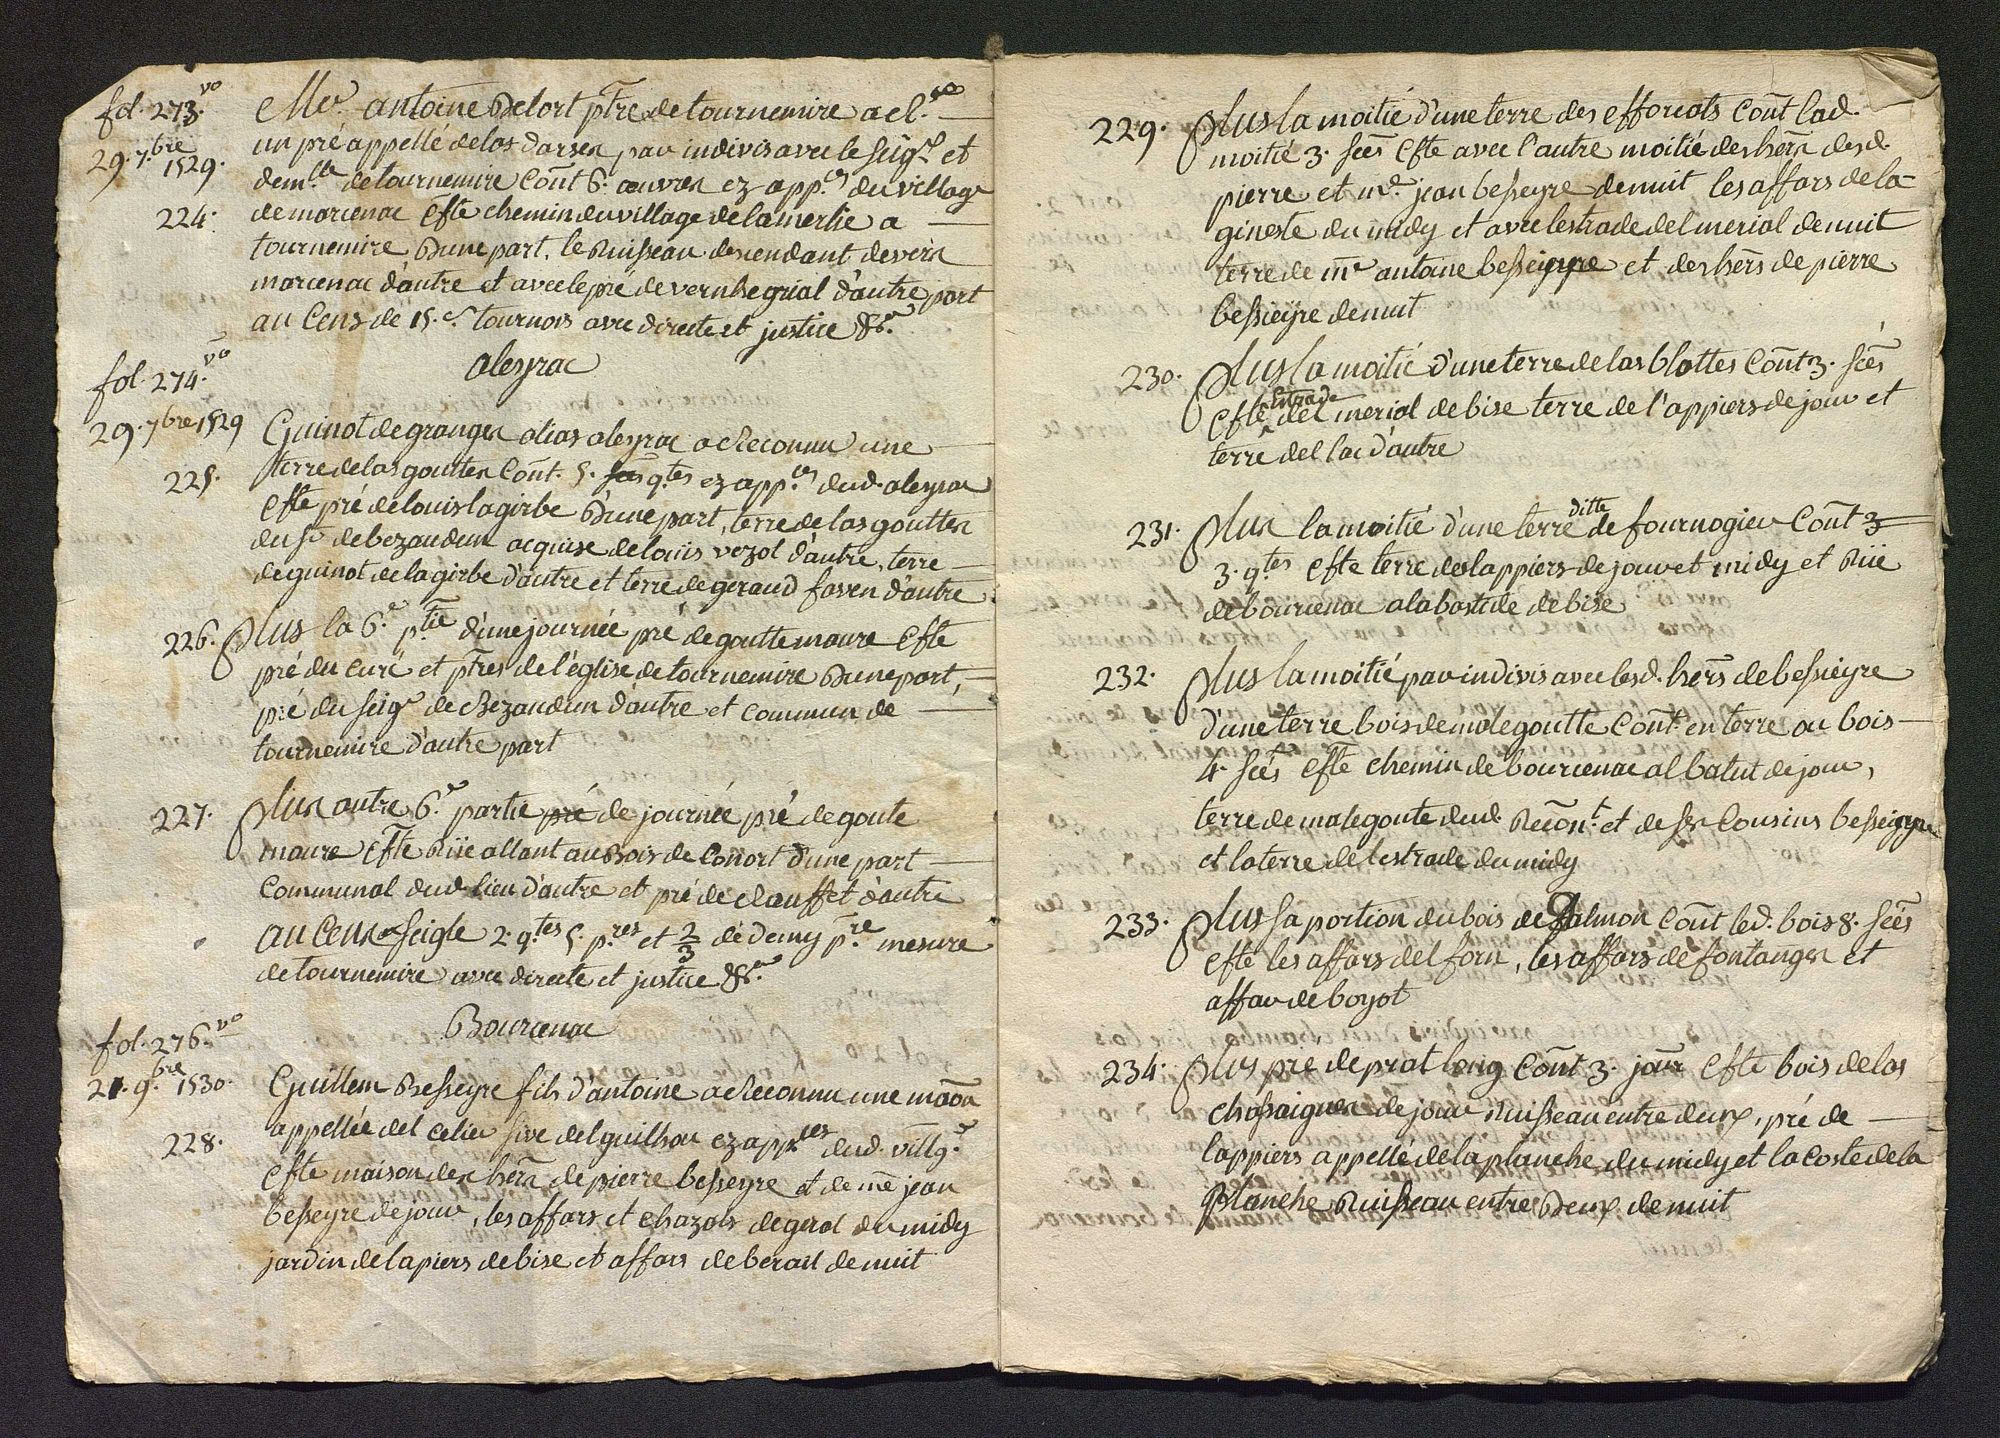 fol. 273. vo
29. 7.bre 1529.
224.
Me. antoine Delort ptre de tournemire a el.
un pré appellé de las darsen par indivis avec le seigr. et
demlle de tournemire Cont 6. œuvres ez app.es du village
de marcenac Cfte chemin du village de la merlie a
tournemire Dune part, le Ruisseau descendant devers
marcenac d'autre et avec le pré de vernhegrial d'autre part
au Cens de 15. s. tournois avec directe et justice &c.a
fol. 274. vo
aleyrac
29. 7bre 1529
225.
Guinot de granges alias aleyrac a Reconnu une
terre de las goutten Cont. 5. qtes ez app.es dud. aleyrac
Cfte pré de louis lagirbe Dune part, terre de las goutten
du sr de bezaudun acquise de louis vezol d'autre, terre
de guinot de lagirbe d'autre et terre de geraud faven d'autre
226. Plus la 6.e ptie d'une journée pré de gouttemaure Cfte
pré du curé et ptres de l'église de tournemire Dune part,
pré du seigr de Bezaudun d'autre et commun de
tournemire d'autre part
227. Plus autre 6.e partie pré de journée pré de goute
maure Cfte Rüe allant au Bois de Conort d'une part
Communal dud. lieu d'autre et pré de clauffet d'autre
au Cens seigle 2. qtes 5. pres et 2/3 de demy pre mesure
de tournemire avec directe et justice &c.a
fol. 276. vo
Bourcenac
21. 9.bre 1530.
228.
Guillem Besseyre fils d'antoine a Reconnu une maōn
appellée del celier sive del guilhou ez app.ces dud. villg.e
Cfte maison des hērs de pierre besseyre et de me jean
besseyre de jour, les affars et chazals de gerol du midy
jardin de lapiers de bise et affars de berail de nuit
229. Plus la moitié d'une terre des efforcats Cont lad.
moitié 3. sées Cfte avec l'autre moitié des hērs desd.
pierre et me. jean besseyre de nuit les affars de la
gineste du midy et avec lestrade del merial de nuit
terre de me antoine besseyre et des hērs de pierre
bessieyre de nuit
230. Plus la moitié d'une terre de las blattes Cont. 3. sées
Cfte lestrade del merial de bise terre de l'appiers de jour et
terre del lac d'autre
231. Plus la moitié d'une terre ditte de fournogieu Cont 3
3. qtes Cfte terre de lappiers de jour et midy et Rüe
de bourcenac a la bastide de bise
232. Plus la moitié par indivis avec lesd. hērs de bessieyre
d'une terre bois de malegoutte Cont en terre ou bois
4. sées Cfte chemin de bourcenac al batut de jour,
terre de malegoute dud. Recōnt. et de ses Cousins besseyre
et la terre de lestrade du midy
233. Plus sa portion du bois de galmon Cont led. bois 8. sées
Cfte les affars del forn, les affars de fontanges et
affar de boyot
234. Plus pré de prat long Cont 3. jour Cfte bois de las
chassaignes de jour Ruisseau entre deux, pré de
lappiers appellé de la planche du midy et la coste de la
Planche Ruisseau entre Deux de nuit